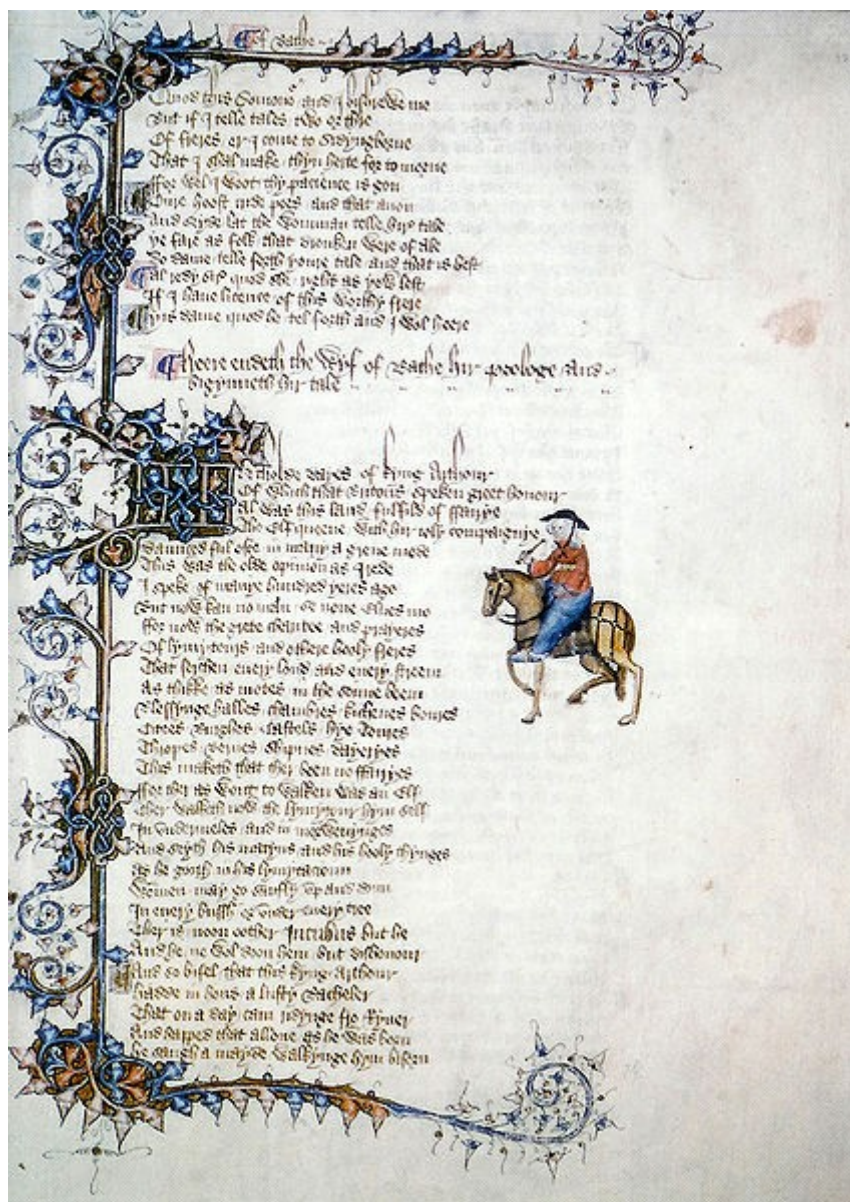 Of Bathe
Quod this Somono and I bishrewe me
But if I telle tales two or thre
Of freres er I come to Sidyngborne
That I shal make thyn herte for to morne
ffor wel I woot thy pacience is gon
Oure hoost cride pees and that anon
And seyde lat the womman telle hire tale
ye fare as folk that dronken were of ale
Do dame telle forth youre tale and that is best
Al redy sire quod she right as yow lest
If I have licence of this worthy frere
yis dame quod he tel forth and I wol heere
Heere endeth the Wyf of Bathe hir prologe and
bigynneth hir tale
In tholde dayes of kyng Arthour
Of which that Britons speken greet honour
Al was this land fulfild of ffairye
The Elf queene with hir joly compaignye
Daunced ful ofte in many a grene mede
This was the olde opinion as I rede
I speke of manye hundred yeres ago
But now kan no man se none Elves mo
ffor now the grete charitee and prayeres
Of lymytours and othere hooly freres
That serchen every lond and every streem
As thikke as motes in the sonne beem
Blessynge halles chambres kichenes boures
Citees Burghes Castels hye Toures
Thropes bernes shipnes dayeryes
This maketh that ther been no ffairyes
ffor ther as wont to walken was an Elf
Ther walketh now the lymytour hym self
In undermeles and in morwenynges
And seyth his matyns and his hooly thynges
As he gooth in his lymytacioun
Wommen may go saufly up and doun
In every bussh or under every tree
Ther is noon oother Incubus but he
And he ne wol doon hem but dishonour
And so bifel that this kyng Arthour
hadde in hous a lusty Bacheler
That on a day cam ridynge fro Ryver
And happed that allone as he was born
he saugh a mayde walkynge hym biforn